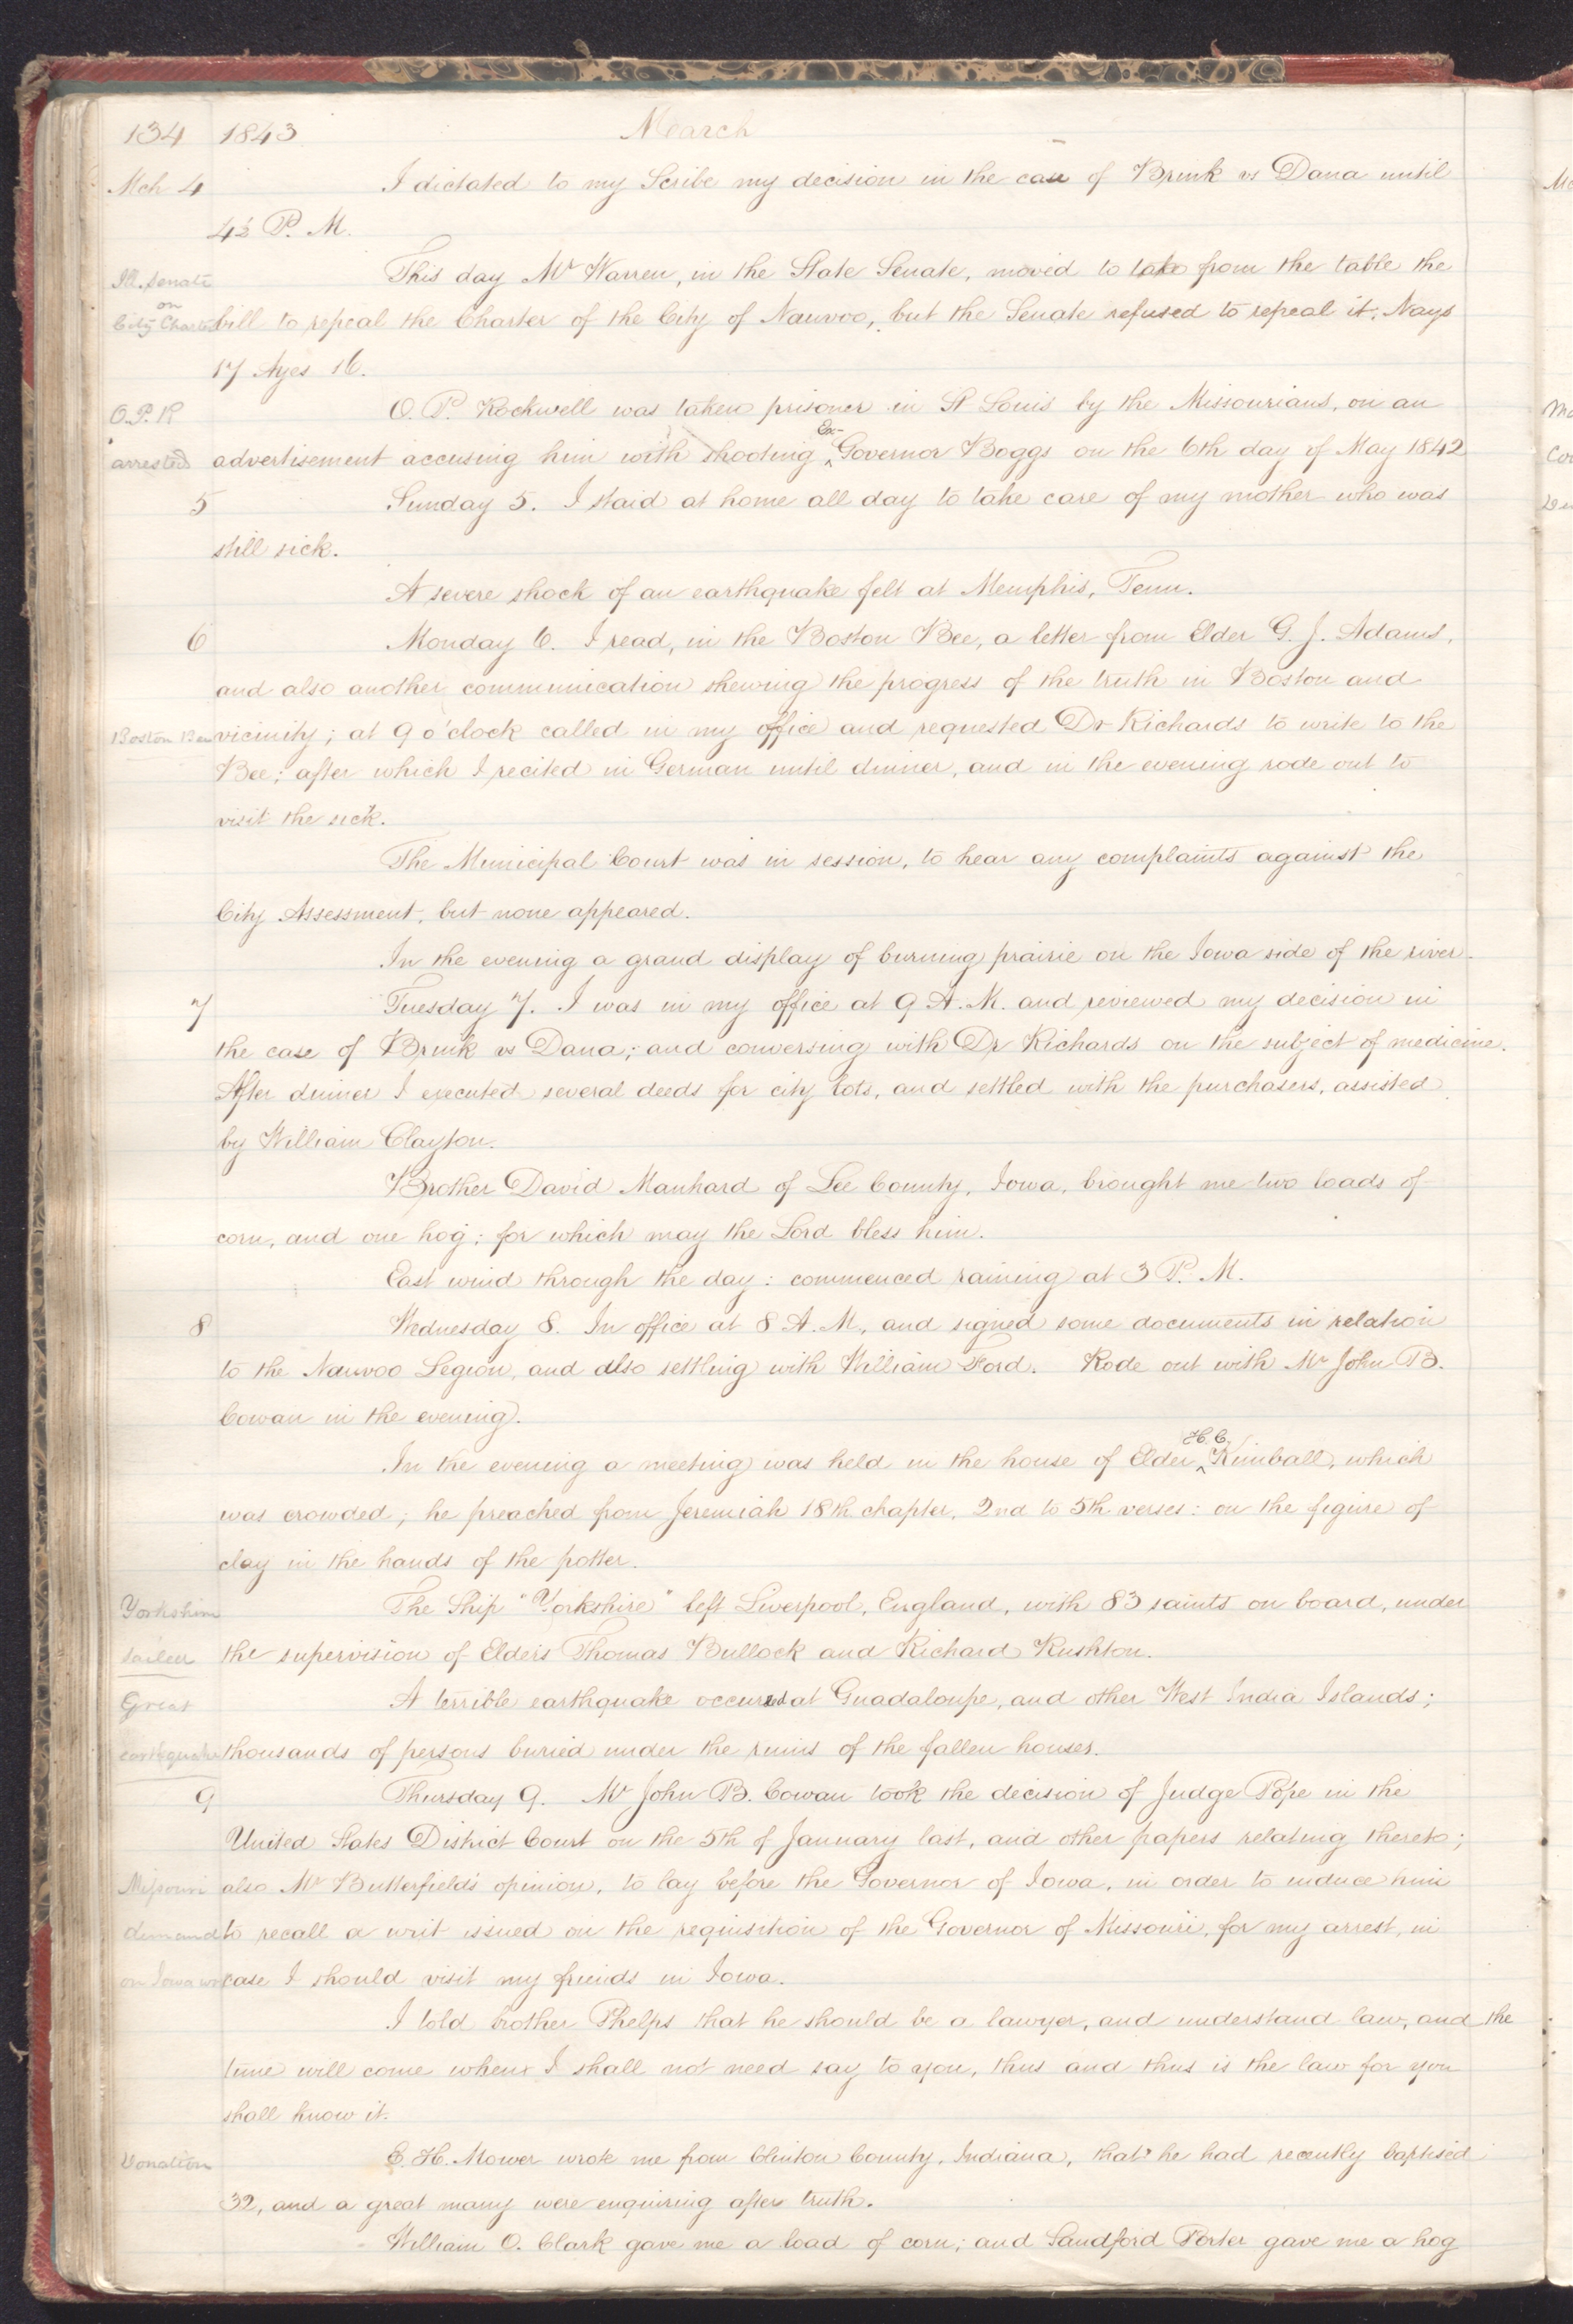 134 1843 March
Mch 4 I dictated to my Scribe my decision in the case of Brink vs Dana until
4½ P. M.
Ill. Senate This day Mr Warren, in the State Senate, moved to take from the table the
on
City Charter bill to repeal the Charter of the City of Nauvoo, but the Senate refused to repeal it; Nays
17 Ayes 16.
O. P. R O. P. Rockwell was taken prisoner in St Louis by the Missourians, on an
Ex-
arrested advertisement accusing him with shooting ^ Governor Boggs on the 6th day of May 1842
5 Sunday 5. I staid at home all day to take care of my mother who was
still sick.
A severe shock of an earthquake felt at Memphis, Tenn.
6 Monday 6. I read, in the Boston Bee, a letter from Elder G. J. Adams,
and also another communication shewing the progress of the truth in Boston and
Boston Bee vicinity; at 9 o'clock called in my office and requested Dr Richards to write to the
Bee; after which I recited in German until dinner, and in the evening rode out to
visit the sick.
The Municipal Court was in session, to hear any complaints against the
City Assessment, but none appeared.
In the evening a grand display of burning prairie on the Iowa side of the river.
7 Tuesday 7. I was in my office at 9 A. M. and reviewed my decision in
the case of Brink vs Dana; and conversing with Dr Richards on the subject of medicine.
After dinner I executed several deeds for city lots, and settled with the purchasers, assisted
by William Clayton.
Brother David Manhard of Lee County, Iowa, brought me two loads of
corn, and one hog; for which may the Lord bless him.
East wind through the day: commenced raining at 3 P. M.
8 Wednesday 8. In office at 8 A. M, and signed some documents in relation
to the Nauvoo Legion, and also settling with William Ford. Rode out with Mr John B.
Cowan in the evening.
H. C.
In the evening a meeting was held in the house of Elder ^ Kimball, which
was crowded; he preached from Jeremiah 18th chapter, 2nd to 5th verses: on the figure of
clay in the hands of the potter.
Yorkshire The Ship "Yorkshire" left Liverpool, England, with 83 saints on board, under
the supervision of Elders Thomas Bullock and Richard Rushton.
Great A terrible earthquake occured at Guadaloupe, and other West India Islands;
earthquake thousands of persons buried under the ruins of the fallen houses.
9 Thursday 9. Mr John B. Cowan took the decision of Judge Pope in the
United States District Court on the 5th of January last, and other papers relating thereto;
Missouri also Mr Butterfield's opinion, to lay before the Governor of Iowa, in order to induce him
demand to recall a writ issued on the requisition of the Governor of Missouri, for my arrest, in
on Iowa case I should visit my friends in Iowa.
I told brother Phelps that he should be a lawyer, and understand law, and the
time will come when I shall not need say to you, thus and thus is the law for you
shall know it.
Donation E. H. Mower wrote me from Clinton County, Indiana, that he had recently baptised
32, and a great many were enquiring after truth.
William O. Clark gave me a load of corn; and Sandford Porter gave me a hog